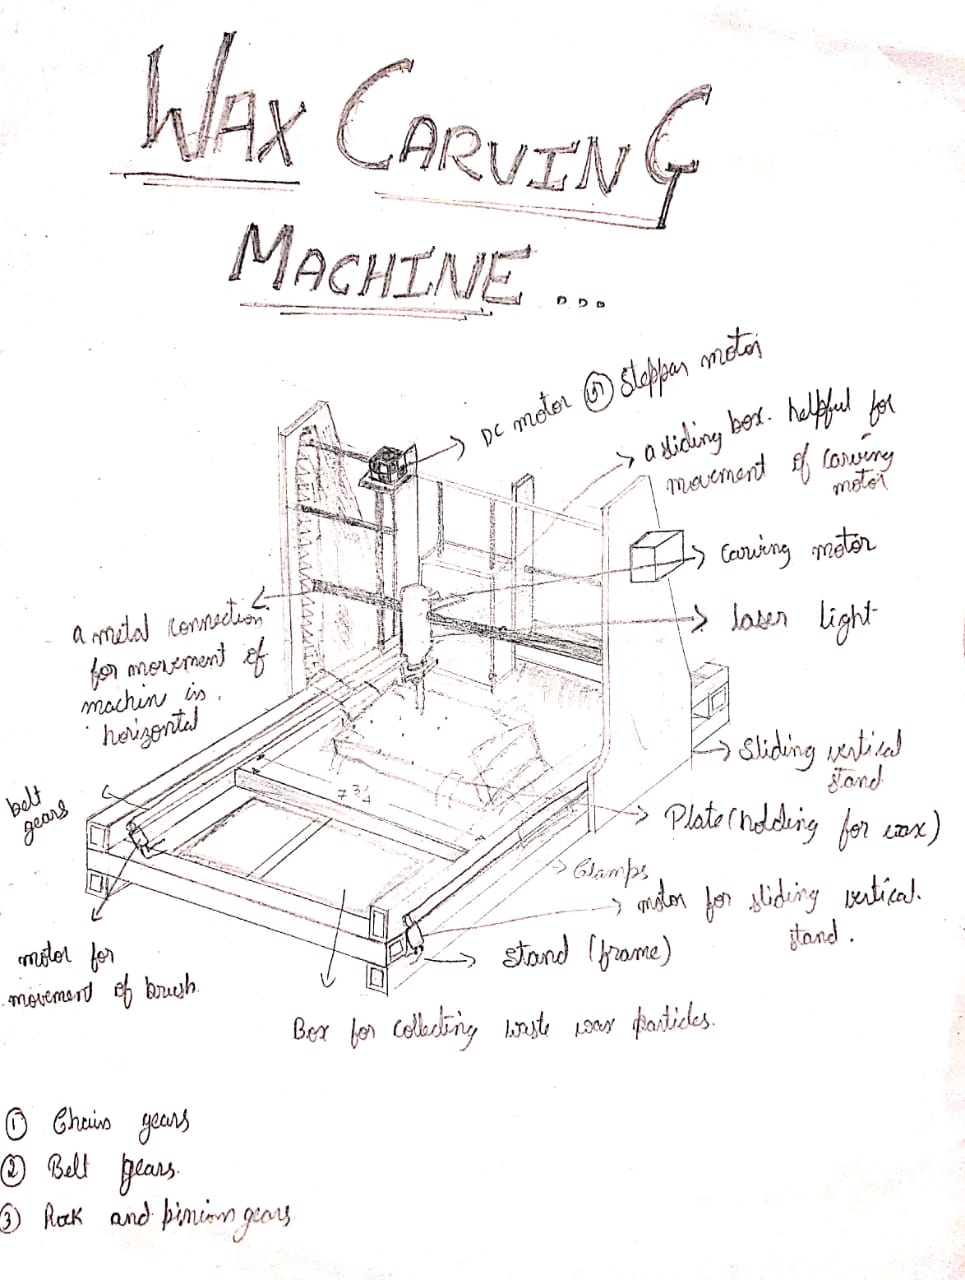 WAX CARVING
MACHINE ...
DC motor (5) steppar motor
a sliding box. helpful for
movement of carving
motor
carving motor
laser light
a metal connection
for movement of
machin is
horizontal
Sliding vertical
stand
belt
gears
Plate (holding for wax)
7 3/4
Clamps
motor for sliding vertical.
stand.
motor for
movement of brush.
Stand (frame)
Box for collecting waste wax particles.
① Chain gears
② Belt gears.
③ Rack and pinion gears